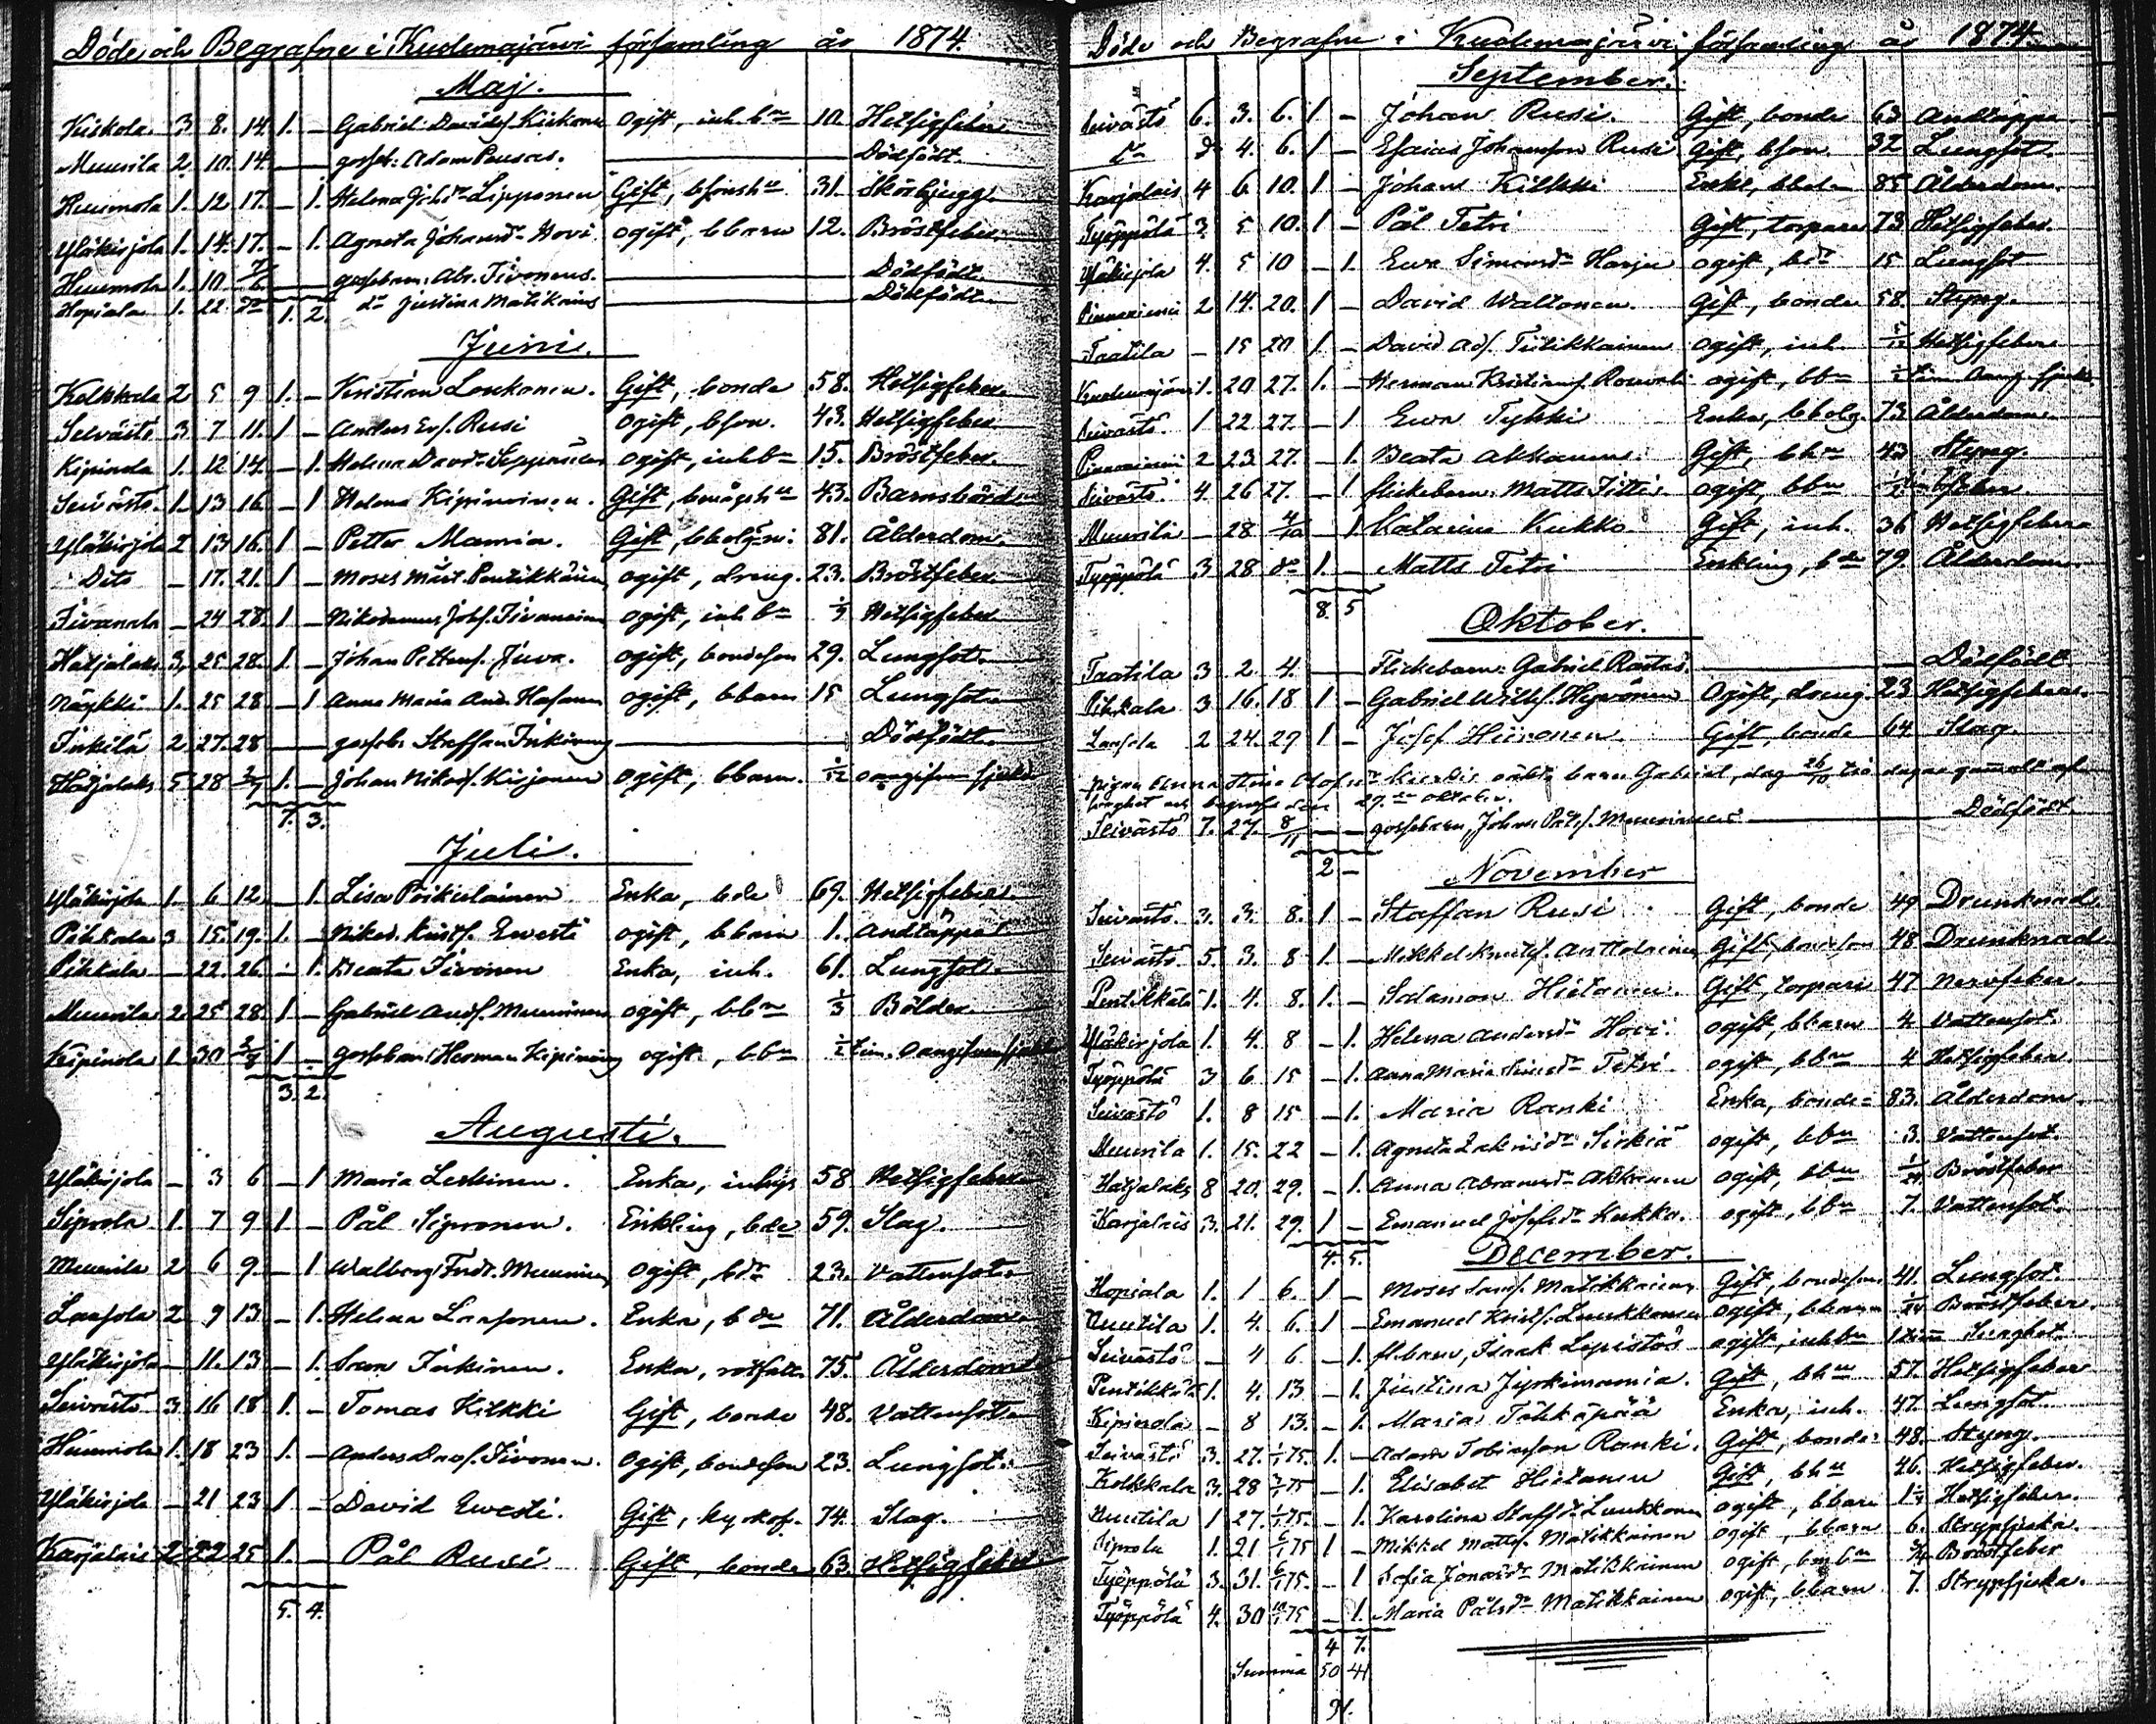 Döde och Begrafne i Kuolemajärvi församling år 1874.
Maj.
Kiskola 3 8. 14. 1. – Gabriel Davidsf. Kiskonen ogift, inh. bn 10 Hetsigfeber
Muurila 2 10. 14. — gosseb: Adam Pousas. Dödfödt.
Huumola 1. 12 17. – 1. Helena Johsdr Lipponen Gift, bsonshu 31. Skörbjugg.
Yläkirjola 1. 14. 17. – 1. Agneta Johansdr Hovi ogift, bbarn 12. Bröstfeber
Huumola 1. 10 7/6 — gossebarn: Abr. Sivonens. Dödfödt.
Hopiala 1. 22. dn — dn Justina Matikains Dödfödt.
1. 2.
Juni.
Kolkkala 2 5 9 1. – Kristian Loukonen. Gift, bonde 58. Hetsigfeber.
Seivästö 3 7 11. 1 – Anders Ers. Rusi ogift, bson. 43. Hetsigfeber
Kipinola 1. 12 14. – 1. Helena Davdr Seppäläin ogift, inhbn 15. Bröstfeber.
Seivästö 1 13 16. – 1 Helena Kipinoinen. Gift, bmågshu 43. Barnsbörd
Yläkirjola 2 13 16. 1 – Petter Mamia. Gift, bbolgm. 81. Ålderdom.
Dito – 17. 21. 1 – Moses Mårt. Pentikkäin ogift, dreng. 23. Bröstfeber
Sivanala – 24 28. 1 – Nikodemus Johs. Sivonen ogift, inh bn Hetsigfeber
Hatjalaks 3, 25 28. 1. – Johan Petters. Juva. ogift, bondeson 29. Lungsot.
Näykki 1. 25 28 – 1 Anna Maria And. Hasanen ogift, bbarn 15 Lungsot.
Inkilä 2 27. 28 — gosseb. Staffan Inkinens Dödfödt.
Hatjalaks 5 28 2/7 1. – Johan Nikod. Kirjonen ogift, bbarn. 1/12 oangifven sjukd
7. 3.
Juli.
Yläkirjola 1. 6 12 – 1. Lisa Pöikieläinen Enka, bde 69. Hetsigfeber.
Pihkala 3 15. 19. 1. – Nikod. Kristf. Ewesti ogift, bbarn 1. Andtäppa
Pihkala – 22. 26 – 1. Beata Sivonen Enka, inh. 61. Lungsot.
Muurila 2 25 28 1 – Gabriel Ands. Muurinen ogift, bbn 1/3 Bölder.
Kipinola 1 30 2/8 1 – gossebarn: Herman Kipinoing ogift, bbn 1/2 tim. oangifven sjukd
3. 2.
Augusti.
Yläkirjola – 3 6 – 1 Maria Leskinen. Enka, inhys 58 Hetsigfeber
Siprola 1. 7 9 1 – Pål Sipronen. Enkling, bde 59. Slag.
Muurila 2 6 9. – 1 Walborg Frdr. Muurinen ogift, bdr 23. Vattensot.
Laasola 2 9 13 – 1. Helena Laasonen. Enka, bde 71. Ålderdom
Yläkirjola – 11. 13 – 1. Inkinen. Enka, rothatt. 75. Ålderdom
Seivästö 3 16 18 1. – Tomas Kilkki Gift, bonde 48. Vattensot.
Huumola 1. 18 23 1. – Anders Davs. Sivonen. ogift, bondeson 23. Lungsot.
Yläkirjola – 21 23 1 – David Ewesti. Gift, kyrkof. 74. Slag.
Karjalais 2 22 25 1. – Pål Rusi Gift, bonde 63. Hetsigfeber
5. 4.
Döde och Begrafne i Kuolemajärvi församling år 1874.
September.
Seivästö 6. 3. 6. 1 – Johan Rusi. Gift, bonde 63 Andtäppa
dn dn 4. 6. 1 – Esaias Johansson Rusi Gift, bson. 32 Lungsot.
Karjalais 4 6 10. 1 – Johan Kilkki Enkl, bbol– 85 Ålderdom.
Työppölä 3. 5 10. 1 – Pål Tetri Gift, torpare 73 Hetsigfeber.
Yläkirjola 4. 5 10 – 1. Ewa Simonsdr Harju ogift, bdr 15 Lungsot
Pinnaniemi 2 14. 20. 1 – David Waltonen. Gift, bonde 58. Styng.
Taatila – 15 20 1 – David Ads. Tiitikkainen ogift, inh. 5/12 Hetsigfeber
Kuolemajärvi 1. 20 27. 1. – Herman Kristians. Rouvali ogift, bbn 1/2 tim oang. sjukd.
Seivästö 1 22 27. – 1 Ewa Tykki Enka, bbolg. 73. Ålderdom.
Pinnaniemi 2 23. 27. – 1. Beata Akkanen Gift, bhu 43 Styng.
Seivästö 4. 26 27. – 1 flickebarn: Matts Tittis ogift, bbn
Muurila – 28 4/10 – 1. Katarina Kukko Gift, inh. 36 Hetsigfeber
Työppölä 3 28 dn 1. – Matts Tetri Enkling, bde 79. Ålderdom.
8. 5
Oktober.
Taatila 3 2 4. — Flickebarn: Gabriel Rastas. Dödfödt
Pihkala 3 16. 18 1 – Gabriel Willhs. Hyvönen Ogift, dreng 23 Hetsigfeber.
Laasola 2 24. 29 1 – Josef Hiironen. Gift, bonde 64 Slag.
pigan Anna Stina Olofsdr oäkta barn Gabriel, dog 26/10 två dagar gammalt af
svaghet och begrofs den 29.de oktober.
Seivästö 7. 27. 8/11 — gossebarn, Johan Påls. Muurinens Dödfödt
2 –
November
Seivästö 3. 3. 8. 1 – Staffan Rusi Gift, bonde 49 Drunknad.
Seivästö 5. 3. 8 1. – Mikkel Knuts. Anttolainen Gift, bondeson 48 Drunknad.
Pentikkälä 1. 4. 8. 1. – Salamon Hietanen. Gift, torpare 47 Nervfeber.
Yläkirjola 1. 4. 8 – 1. Helena Andersdr Hovi. ogift, bbarn 4. Vattensot.
Työppölä 3 6 15 – 1. Anna Maria Simsdr Tetri ogift, bbn 4 Hetsigfeber.
Seivästö 1. 8 15 – 1. Maria Ranki Enka, bonde– 83. Ålderdom.
Muurila 1. 15. 22 – 1. Agneta Zakrisdr Sirkiä ogift, bbn 3. Vattensot.
Hatjalaks 8 20. 29. – 1. Anna Abramsdr Akkanen ogift, bbn 1/24 Bröstfeber
Karjalais 3. 21. 29. 1 – Emanuel Josefs. Kukko. ogift, bbn 7. Vattensot.
4. 5.
December.
Hopiala 1. 1 6. 1 – Moses Sams. Matikkainen Gift, bondeson 41. Lungsot.
Muutila 1. 4. 6. 1 – Emanuel Krists. Luukkonen ogift, bbarn 1/24 Bröstfeber.
Seivästö – 4 6 – 1. fl. barn, Isaak Lepistös ogift, inhbn 1 tim Svaghet.
Pentikkälä 1. 4. 13 – 1. Justina Jyrkimamia. Gift, bhu 57. Hetsigfeber
Kipinola – 8 13. – 1. Maria Tähkäpää Enka, inh. 47. Lungsot.
Seivästö 3. 27. 1/1 75. 1. – Adam Tobiasson Ranki. Gift, bonde 48. Styng.
Kolkkala 3. 28 75 – 1. Elisabet Hietanen Gift, bhu 46. Hetsigfeber.
Muutila 1 27. 1/1 75. – 1. Karolina Staffsdr Luukkonen ogift, bbarn Hetsigfeber.
Siprola 1. 21 6/1 75 1 – Mikkel Matts. Matikkainen ogift, bbarn 6. Strypsjuka.
Työppölä 3. 31. 6/1 75. – 1 Sofia Jonasdr Matikkainen ogift, bmbn Bröstfeber
Työppölä 4. 30 10/1 75 – 1. Maria Pålsdr Matikkainen ogift, bbarn 7. Strypsjuka.
4 7.
Summa 50 41
91.